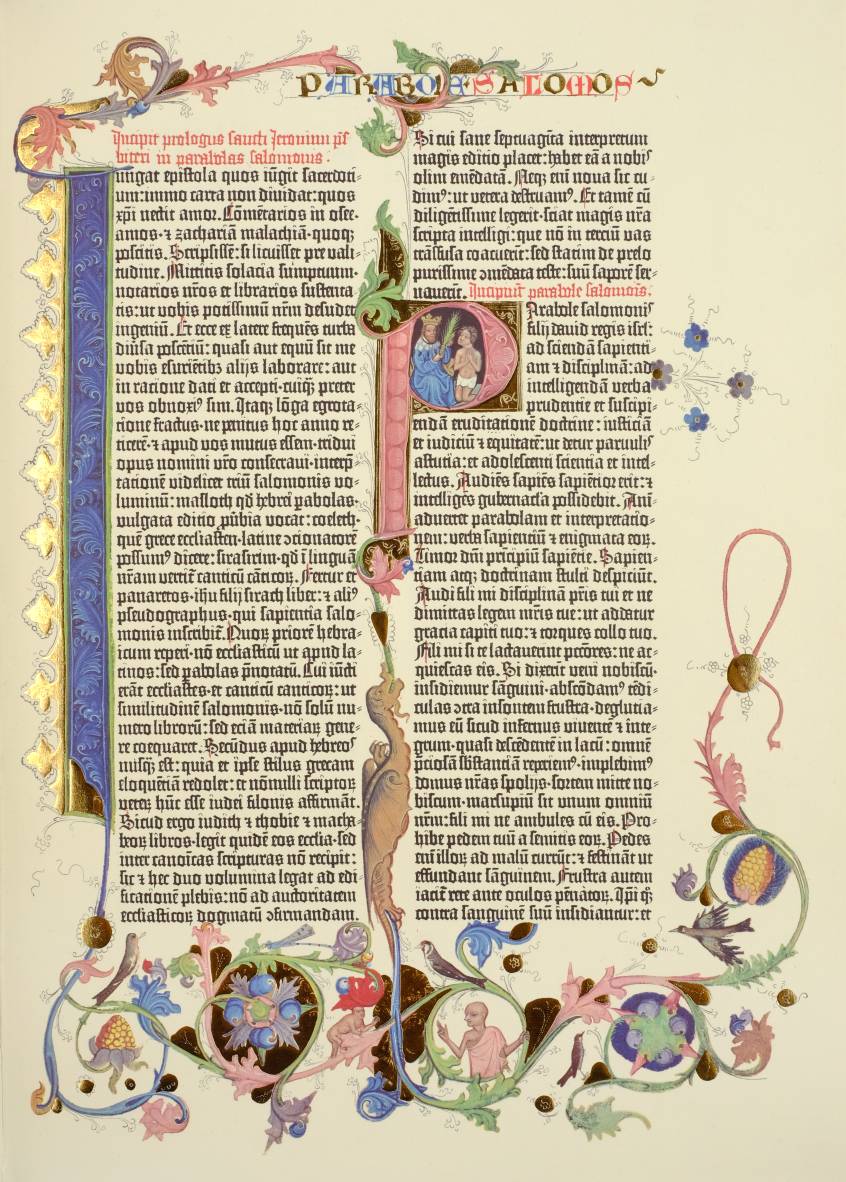 PARABOLE SALOMOIS
Incipit prologus sancti Jeronimi p̄s
biteri in parabolas salomonis.
Iungat epistola quos iūgit sacerdoti-
um: ꝛmmo carta non diuidat: quos
xp̄i nectit amor. Cōmētarios in osee.
amos. ⁊ zachariā malachiā. quoqꝫ
poscitis. Scripsissē: si licuisset pre vali-
tudine. Mittitis solacia sumptuum.
notarios nr̄os et librarios sustenta-
tis: ut vobis potissimū nr̄m desudet
ingeniū. Et ecce ex latere freques turba
diūsa poscētiū: quasi aut equū sit me
vobis esuriētibꝫ alijs laborare: aut
in racione dati et accepti. cuiq̄ꝫ preter
vos obnoxiꝰ sim. Itaqꝫ lōga egrota-
tione fractus. ne penitus hoc anno re-
ticerē. ⁊ apud vos mutus essem. tridui
opus nomini vr̄o consecraui. interp̄-
tationē videlicet triū salomonis vo-
luminū: masloth qd̄ hebrei ꝑabolas.
vulgata editio ꝓūbia vocat: coeleth.
quē grece ecclīasten. latine ꝯcionatorē
possumꝰ dicere: sirasirim. qd̄ ī linguā
nr̄am vertit̄ canticū cāticoꝝ. Fertur et
panaretos. ihū filij sirach liber: ⁊ aliꝰ
pseudographus. qui sapientia salo-
monis inscribit̄. Quoꝝ priorē hebra-
icum reperi. nō ecclīasticū ut apud la-
tinos: sed ꝑabolas p̄notatū. Cui iūcti
erāt ecclīastes. et canticū canticoꝝ: ut
similitudinē salomonis. nō solū nu-
mero libroꝝ: sed eciā materiaꝝ gene-
re coequaret. Secūdus apud hebreoꝰ
nusq̄ꝫ est: quia et ipse stilus grecam
eloquētiā redolet: et nōnulli scriptoꝝ
veteꝝ hūc esse iudei filonis affirmāt.
Sicud ergo iudith ⁊ thobie ⁊ macha-
beoꝝ libros. legit quidē eos ecclīa. sed
inter canoīcas scripturas nō recipit:
sic ⁊ hec duo volumina legat ad edi-
ficationē plebis: nō ad auctoritatem
ecclīasticoꝝ dogmatū ꝯfirmandam.
Si cui sane septuagīta interpretum
magis editio placet: habet eā a nobiꝰ
olim emēdatā. Neqꝫ em̄ noua sic cu-
dimꝰ: ut vetera destruamꝰ. Et tamē cū
diligētissime legerit. sciat magis nr̄a
scripta intelligi: que nō in terciū vas
trāsfusa coacuerit: sed statim de prelo
purissime ꝯmēdata teste: suū saporē ser-
uauerīt. Incipiūt parabole salomoīs.
Parabole salomonis
filij dauid regis isrl̄:
ad sciendā sapienti-
am ⁊ disciplinā: ad
intelligendā verba
prudentie et suscipi-
endā eruditationē doctrine: iusticiā
et iudiciū ⁊ equitatē: ut detur paruuliꝰ
astutia: et adolescenti scientia et intel-
lectus. Audiēs sapiēs sapiētior erit: ⁊
intelligēs gubernacl̄a possidebit. Anī-
aduertet parabolam et interpretatio-
nem: verba sapientiū ⁊ enigmata eoꝝ.
Timor dn̄i prīcipiū sapiētie. Sapien-
ciam atqꝫ doctrinam stulti despiciūt.
Audi fili mi disciplinā pr̄is tui et ne
dimittas legem mr̄is tue: ut addatur
gracia capiti tuo: ⁊ torques collo tuo.
Fili mi si te lactauerīnt p̄ctōres: ne ac-
quiescas eis. Si dixerīt veni nobiscū.
insidiemur sāguini. abscōdamꝰ tēdi-
culas ꝯtra insontem frustra. deglutia-
mus eū sicud infernus viuentē ⁊ inte-
grum. quasi descēdentē in lacū: omnē
p̄ciosā sbstantiā reperiemꝰ. implebimꝰ
domus nr̄as spolijs. sortem mitte no-
biscum. marsupiū sit vnum omniū
nr̄m: fili mi ne ambules cū eis. Pro-
hibe pedem tuū a semitis eoꝝ. Pedes
em̄ illoꝝ ad malū currūt: ⁊ festināt ut
effundant sāguinem. Frustra autem
iacit̄ rete ante oculos pēnatoꝝ. Ip̄i qꝫ
contra sanguinē suū insidiantur: et